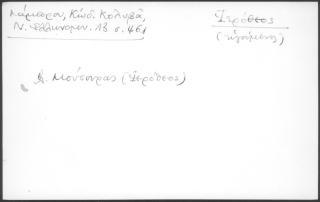 Λάμπρου, Κώδ. Κολυβᾶ,
Ν. Ἑλληνομν. 13 σ. 461
Ἱερόθεος
(ἡγούμενος)
Μούσουρας (Ἱερόθεος)